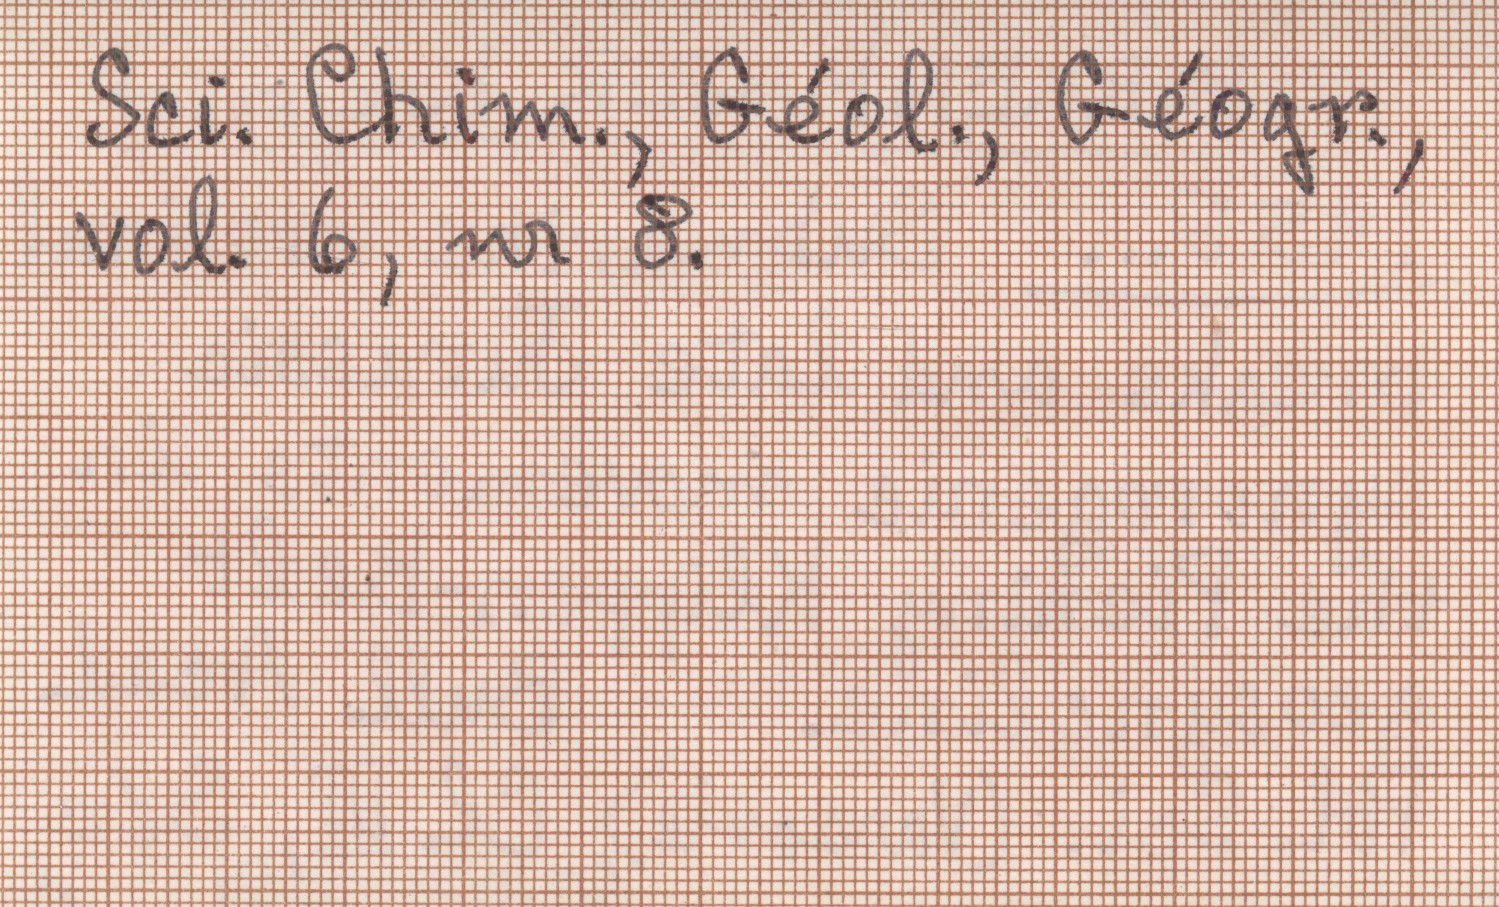 Sci. Chim., Géol., Géogr.,
vol. 6, nr 8.